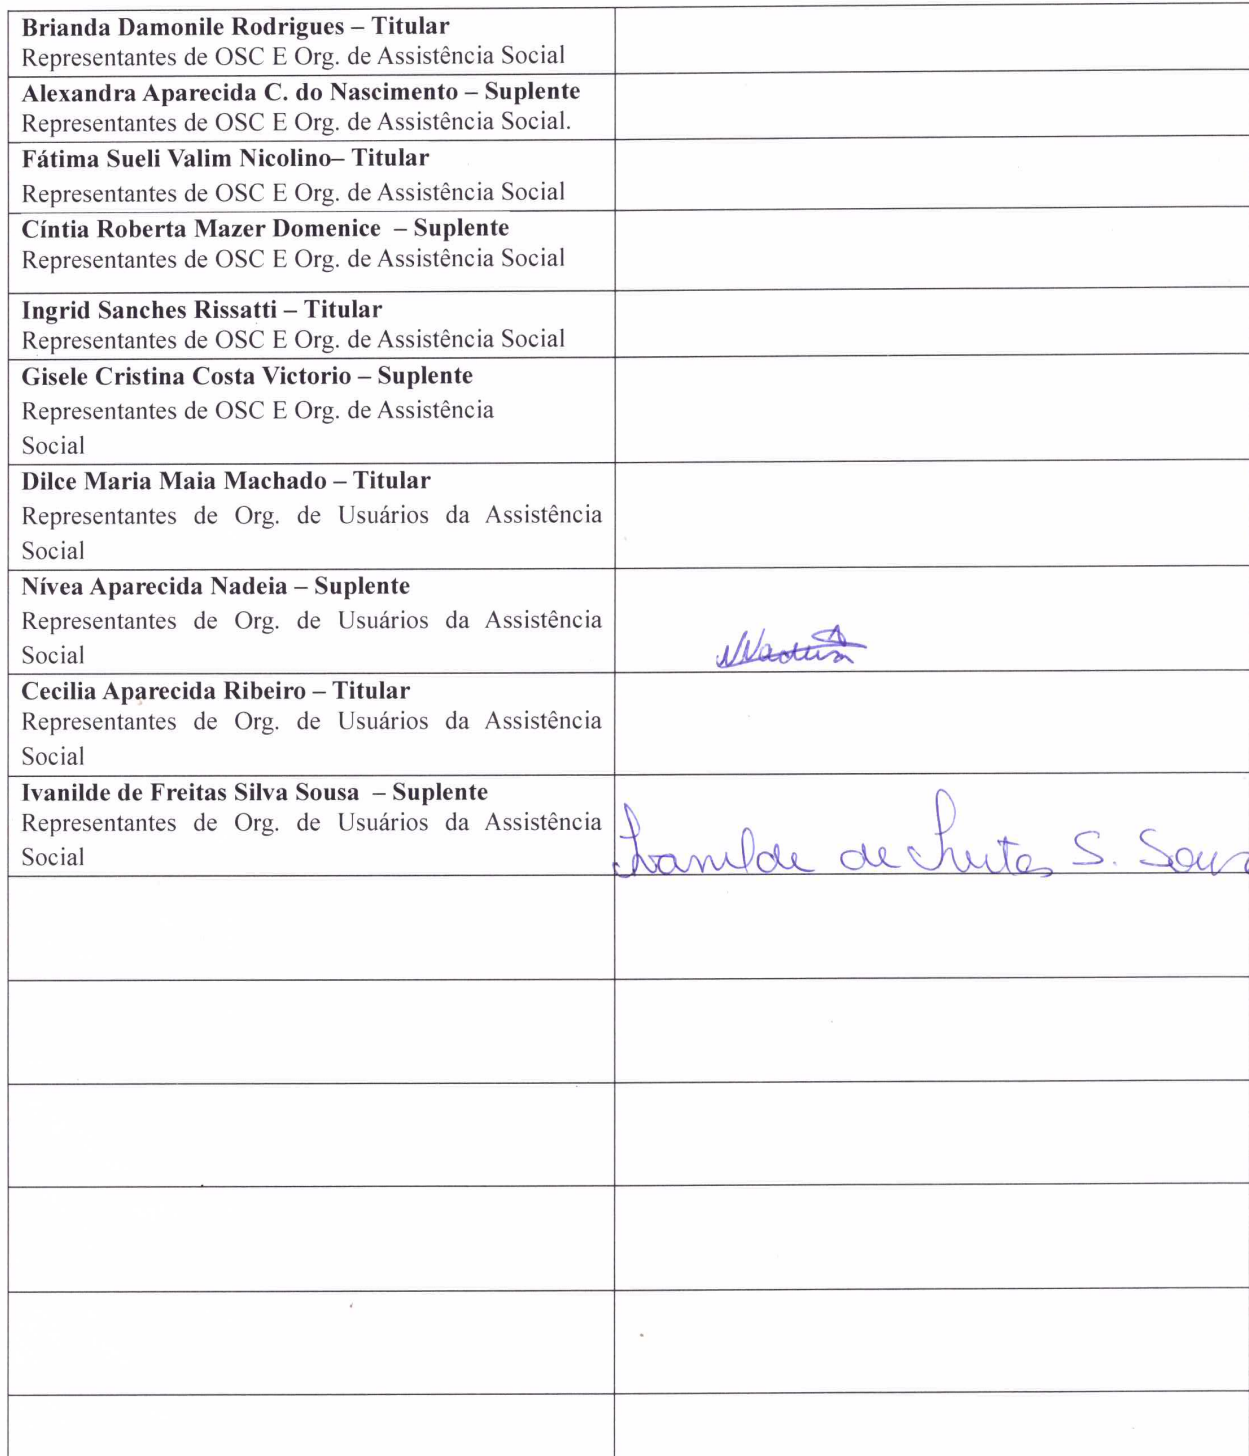 Brianda Damonile Rodrigues – Titular
Representantes de OSC E Org. de Assistência Social
Alexandra Aparecida C. do Nascimento – Suplente
Representantes de OSC E Org. de Assistência Social.
Fátima Sueli Valim Nicolino– Titular
Representantes de OSC E Org. de Assistência Social
Cíntia Roberta Mazer Domenice – Suplente
Representantes de OSC E Org. de Assistência Social
Ingrid Sanches Rissatti – Titular
Representantes de OSC E Org. de Assistência Social
Gisele Cristina Costa Victorio – Suplente
Representantes de OSC E Org. de Assistência
Social
Dilce Maria Maia Machado – Titular
Representantes de Org. de Usuários da Assistência
Social
Nívea Aparecida Nadeia – Suplente
Representantes de Org. de Usuários da Assistência
Social
Cecilia Aparecida Ribeiro – Titular
Representantes de Org. de Usuários da Assistência
Social
Ivanilde de Freitas Silva Sousa – Suplente
Representantes de Org. de Usuários da Assistência
Social
Ivanilde de Freitas S. Sousa